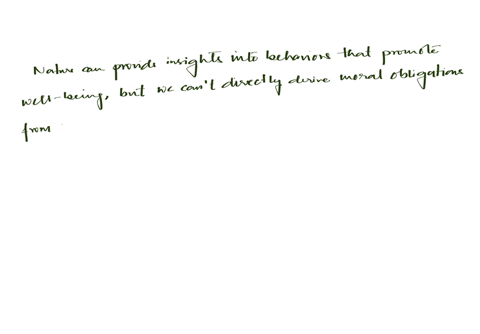 Nature can provide insights into behaviors that promote
well-being, but we can't directly derive moral obligations
from